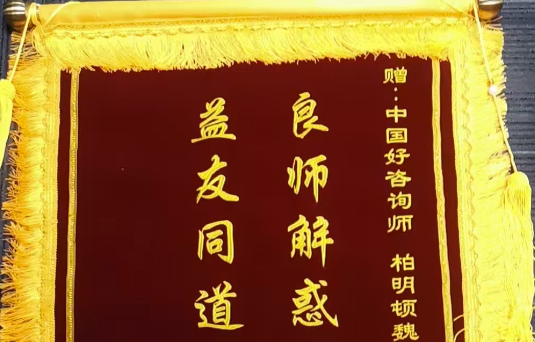 赠：中国好咨询师 柏明顿魏
良师解惑
益友同道